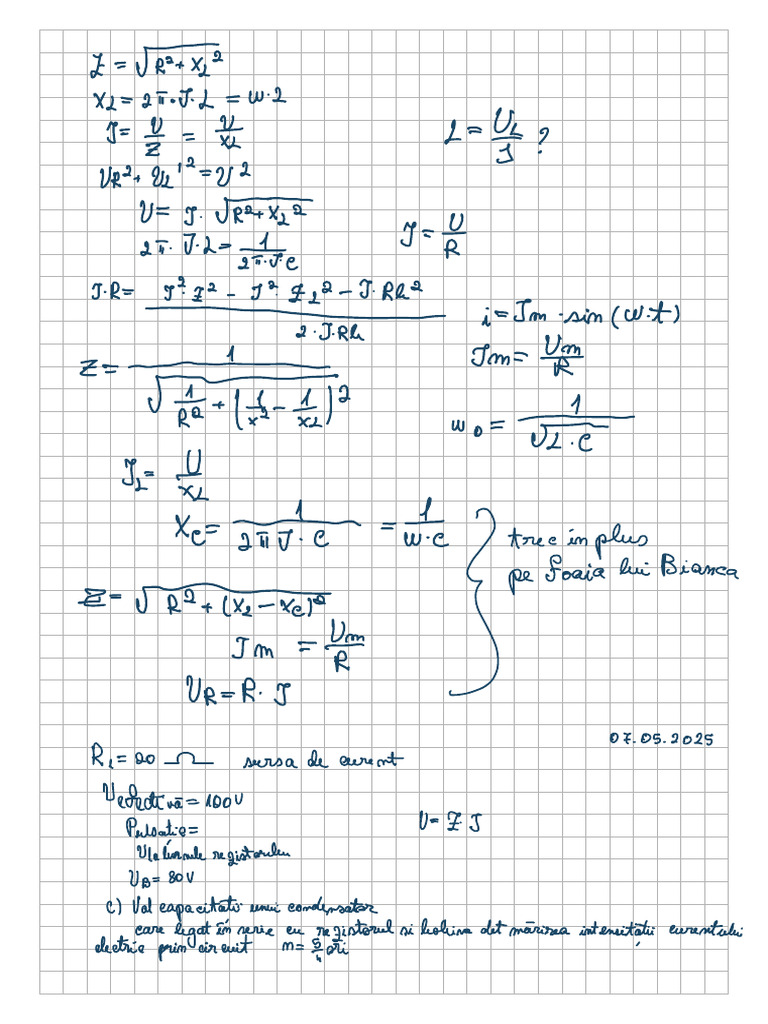 Z = √(R² + X_L²)
X_L = 2π·ν·L = ω·L
I = U/Z = U/X_L
L = U_L/I ?
U_R² + U_L'² = U²
U = I·√(R² + X_L²)
I = U/R
2π·ν·L = 1/(2π·ν·C)
I·R = (I²·Z² - I²·Z_L² - I·Rh²)/(2·I·Rh)
i = Im·sin(ω·t)
Im = Um/R
Z = 1/√(1/R² + (1/x² - 1/X_L)²)
ω₀ = 1/√(L·C)
I_L = U/X_L
X_C = 1/(2πν·C) = 1/(ω·C)
trec în plus
pe foaia lui Bianca
Z = √(R² + (X_L - X_C)²)
Im = Um/R
U_R = R·I
07.05.2025
R₁ = 20 Ω sursa de curent
Uefectivă = 100V
U = Z·I
Pulsatie =
U la bornele registorului
U_B = 80V
c) Val capacitatii unui condensator
care legat în serie cu registorul si bobina det mărirea intensității curentului
electric prim circuit m = 5/4 ori